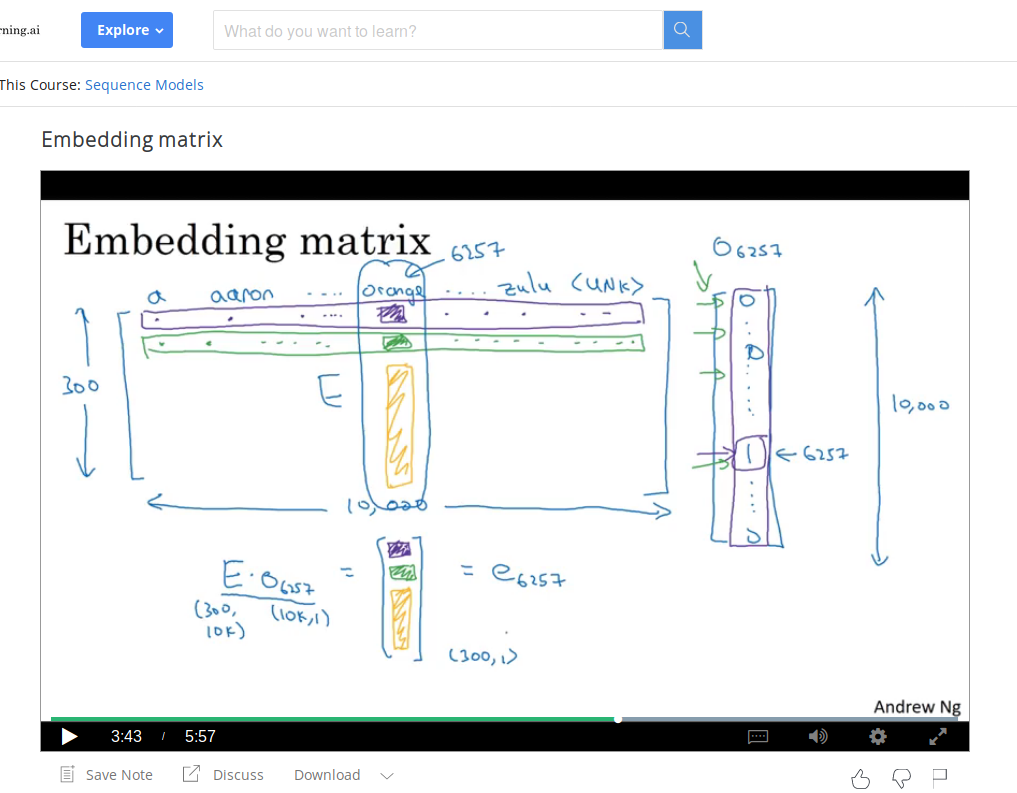 rning.ai
Explore
What do you want to learn?
This Course: Sequence Models
Embedding matrix
Embedding matrix
6257
O6257
a aaron ..... orange ..... zulu <UNK>
0
0
300
E
10,000
1
6257
10,000
0
E · O6257 = [ ] = e6257
(300, 10K) (10K,1)
(300,1)
Andrew Ng
3:43 / 5:57
Save Note
Discuss
Download